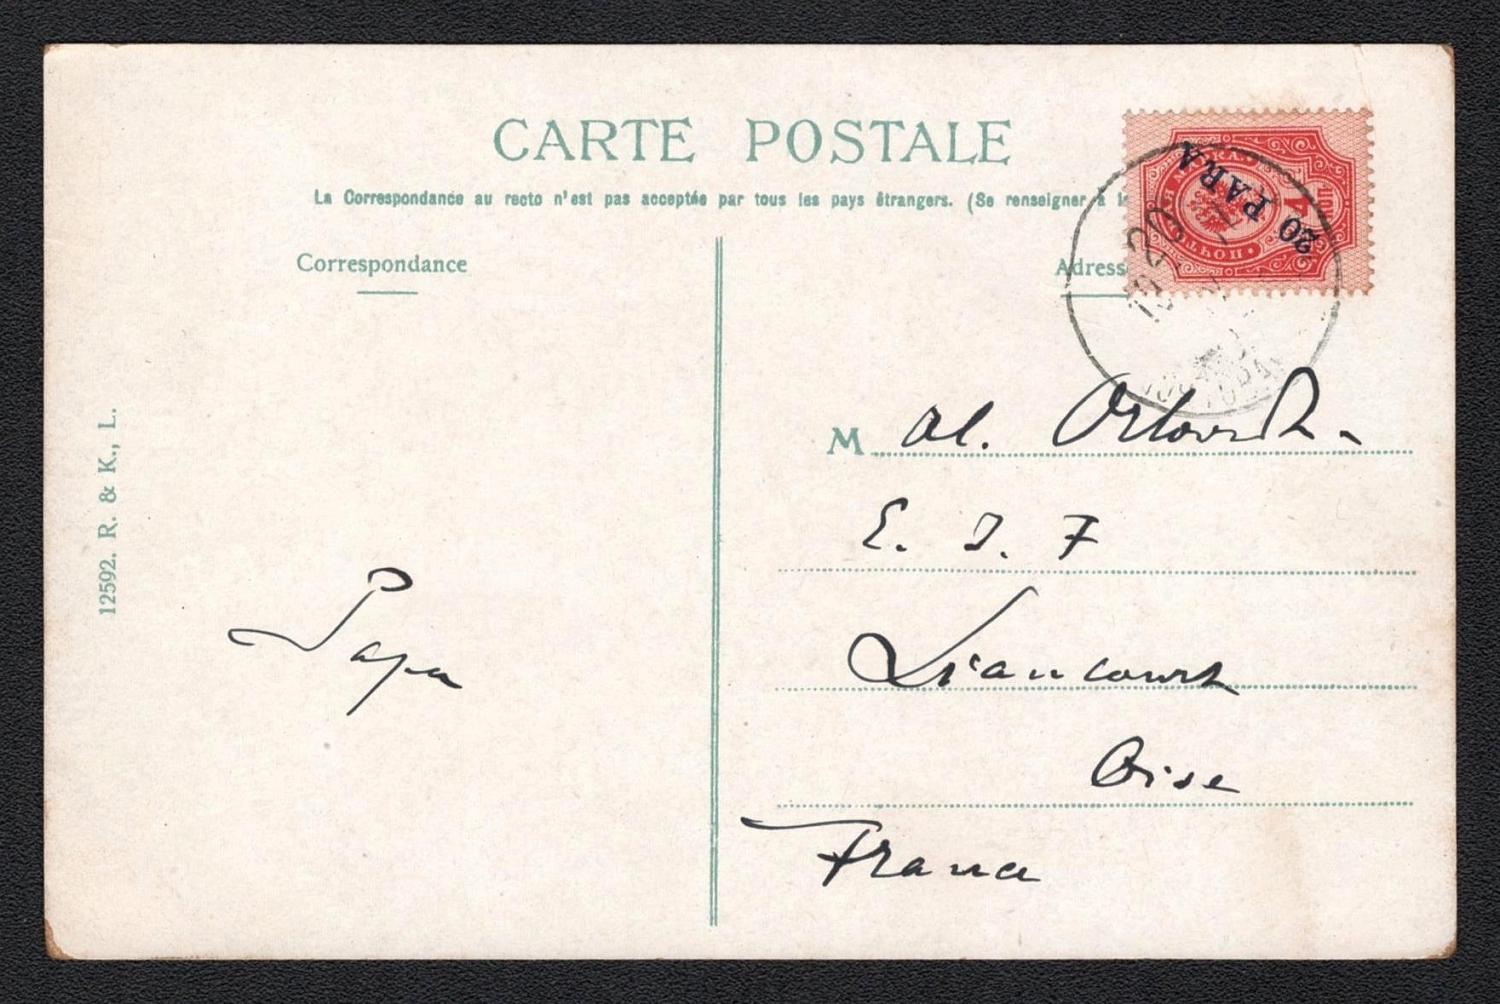 CARTE POSTALE
La Correspondance au recto n'est pas acceptée par tous les pays étrangers. (Se renseigner à
Correspondance
Adress
20 PARA
4
12592. R. & K., L.
M Al.
E. I. F
Liancourt
Oise
France
Papa